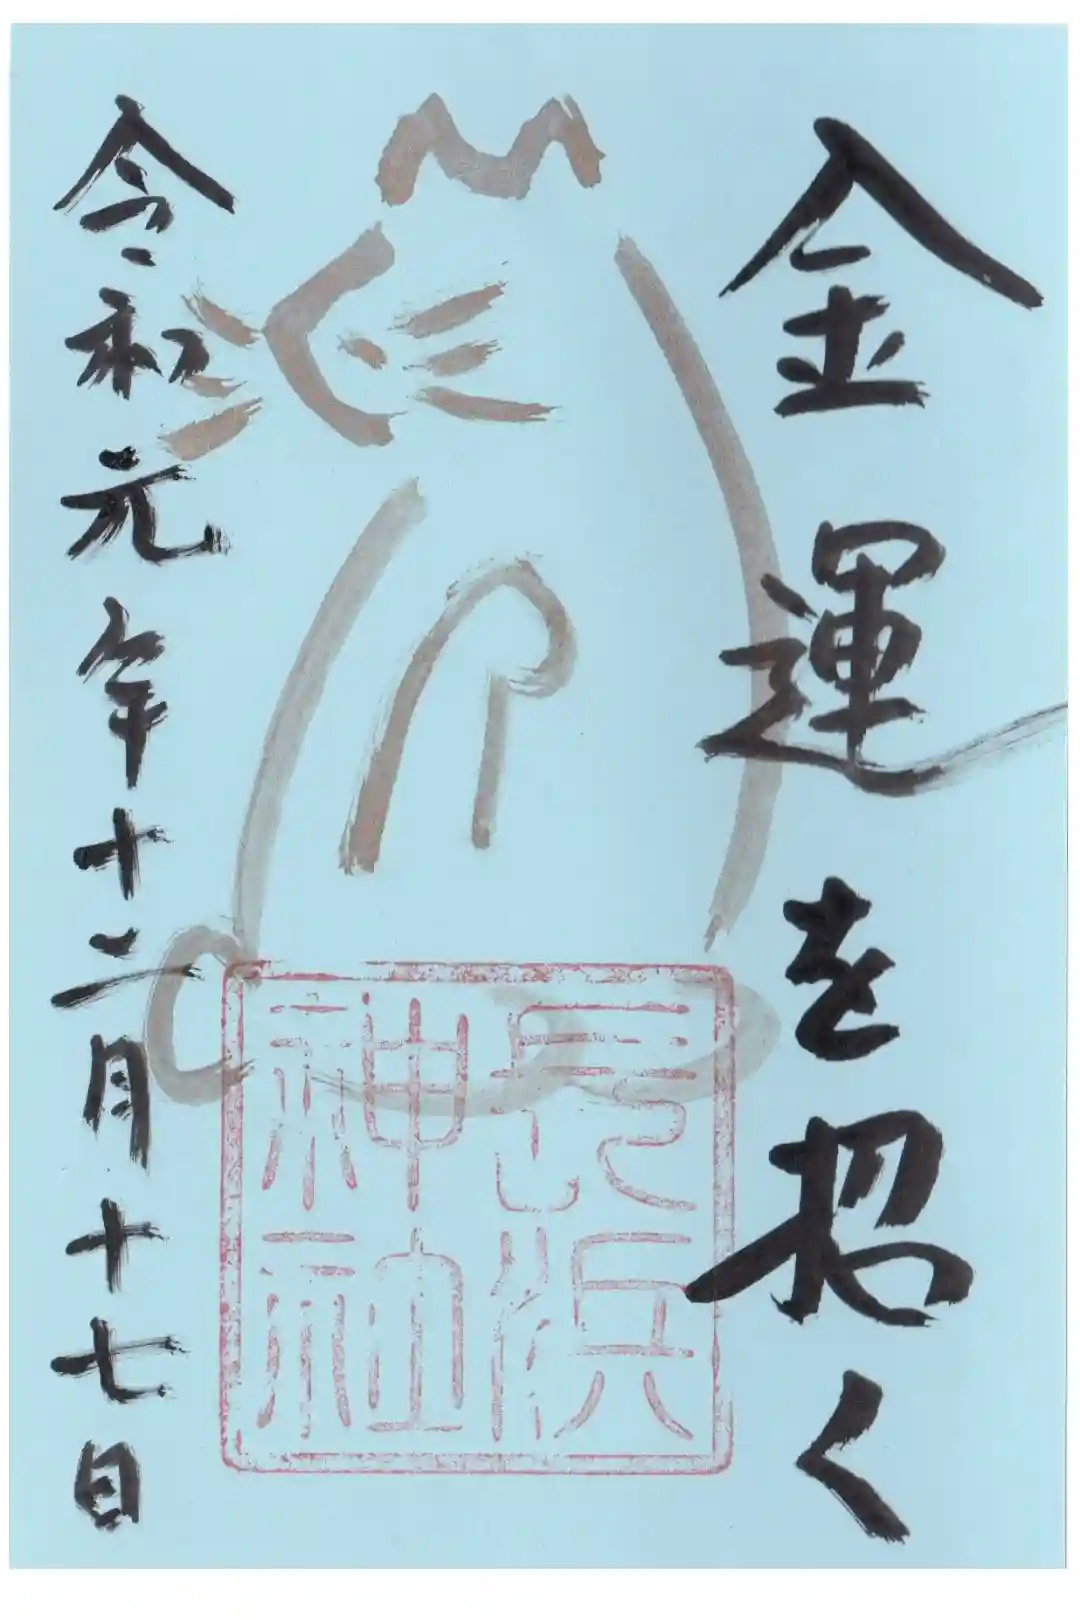 金運を招く
長浜神社
令和元年十二月十七日